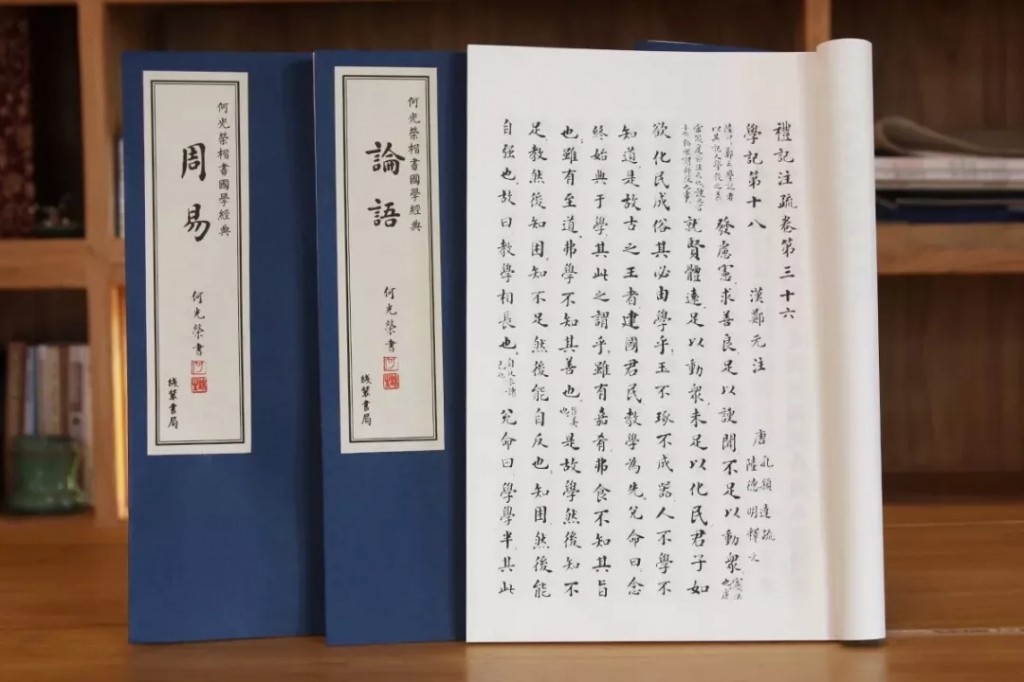 何光榮楷書國學經典
周易
何光榮書
綫裝書局
何光榮楷書國學經典
論語
何光榮書
綫裝書局
禮記注疏卷第三十六
學記第十八 漢鄭元注 唐孔穎達疏
陸德明釋文
以其記人學教之義
發慮憲求善良足以謏聞不足以動衆
就賢體遠足以動衆未足以化民君子如
欲化民成俗其必由學乎玉不琢不成器人不學不
知道是故古之王者建國君民教學為先兌命曰念
終始典于學其此之謂乎雖有嘉肴弗食不知其旨
也雖有至道弗學不知其善也 是故學然後知不
足教然後知困知不足然後能自反也知困然後能
自强也故曰教學相長也 兌命曰學學半其此